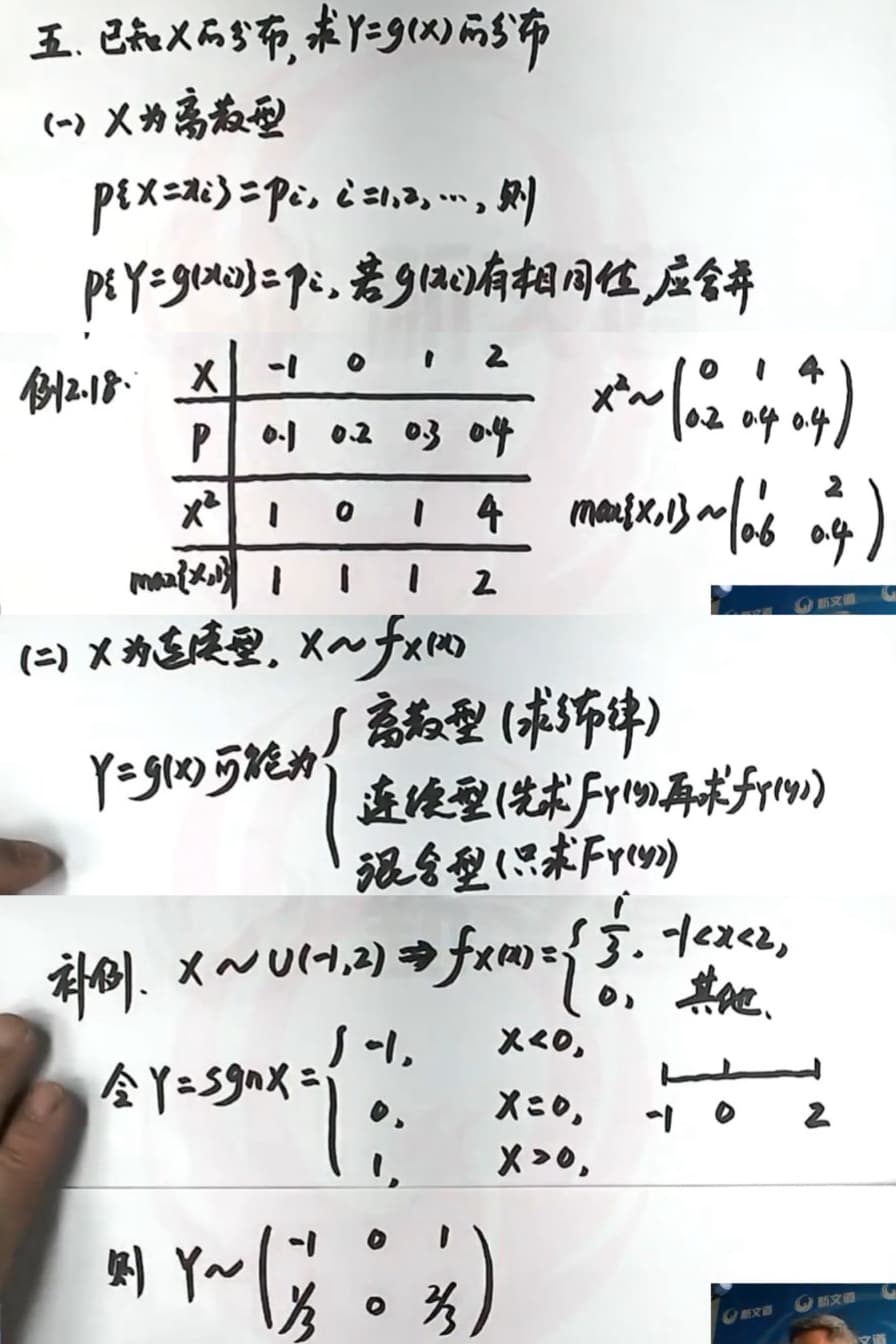 五. 已知X的分布,求Y=g(X)的分布
(一) X为离散型
P{X=xi}=Pi, i=1,2,…, 则
P{Y=g(xi)}=Pi, 若g(xi)有相同值,应合并
例2.18.
X -1 0 1 2
P 0.1 0.2 0.3 0.4
X² 1 0 1 4
max{X,1} 1 1 1 2
X²~(0 1 4
0.2 0.4 0.4)
max{X,1}~(1 2
0.6 0.4)
新文道 新文道
(二) X为连续型, X~fX(x)
Y=g(X)可能为{
离散型(求分布律)
连续型(先求FY(y)再求fY(y))
混合型(只求FY(y))
补例. X~U(-1,2)⇒fX(x)={1/3, -1<x<2,
0, 其他.
令Y=sgnX={-1, X<0,
0, X=0,
1, X>0,
-1 0 2
则 Y~(-1 0 1
1/3 0 2/3)
新文道 新文道
文道